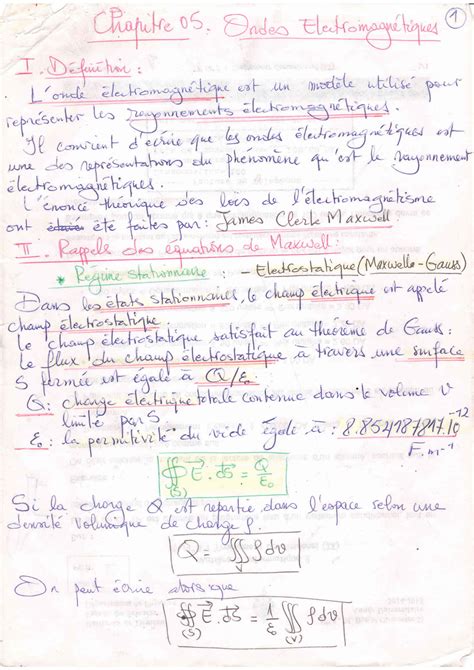 Chapitre 05. Ondes Electromagnétiques
1
I. Définition :
L'onde électromagnétique est un modèle utilisé pour
représenter les rayonnements électromagnétiques.
Il convient d'écrire que les ondes électromagnétiques est
une des représentations du phénomène qu'est le rayonnement
électromagnétiques.
L'énoncé théorique des lois de l'électromagnétisme
ont été faites par : James Clerk Maxwell.
II. Rappels des équations de Maxwell :
* Régime Stationnaire - Electrostatique (Maxwelle-Gauss)
Dans les états stationnaires, le champ électrique est appelé
champ électrostatique.
Le champ électrostatique satisfait au théorème de Gauss :
Le flux du champ électrostatique à travers une surface
S fermée est égale à Q/ε₀
Q : charge électrique totale contenue dans le volume V
limité par S
ε₀ : la permitivité du vide égale à : 8.854187817.10⁻¹²
F.m⁻¹
∯(S) E⃗ . dS⃗ = Q/ε₀
Si la charge Q est repartie dans l'espace selon une
densité volumique de charge ρ.
Q = ∭V ρ dv
On peut écrire alors que
∯(S) E⃗ . dS⃗ = 1/ε₀ ∭(V) ρ dv